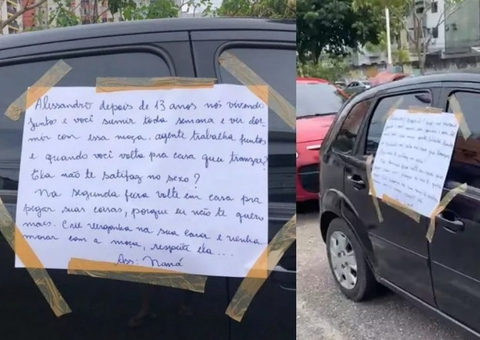 Alessandro depois de 13 anos nós vivendo
juntos e você sumir toda semana e vir dor
mir com essa moça. agente trabalha juntos
e quando você volta pra casa quer transar?
Ela não te satisfaz no sexo?
Na segunda feira volte em casa pra
pegar suas coisas, porque eu não te quero
mais. Crie vergonha na sua cara e venha
morar com a moça, respeite ela...
Ass: Naná